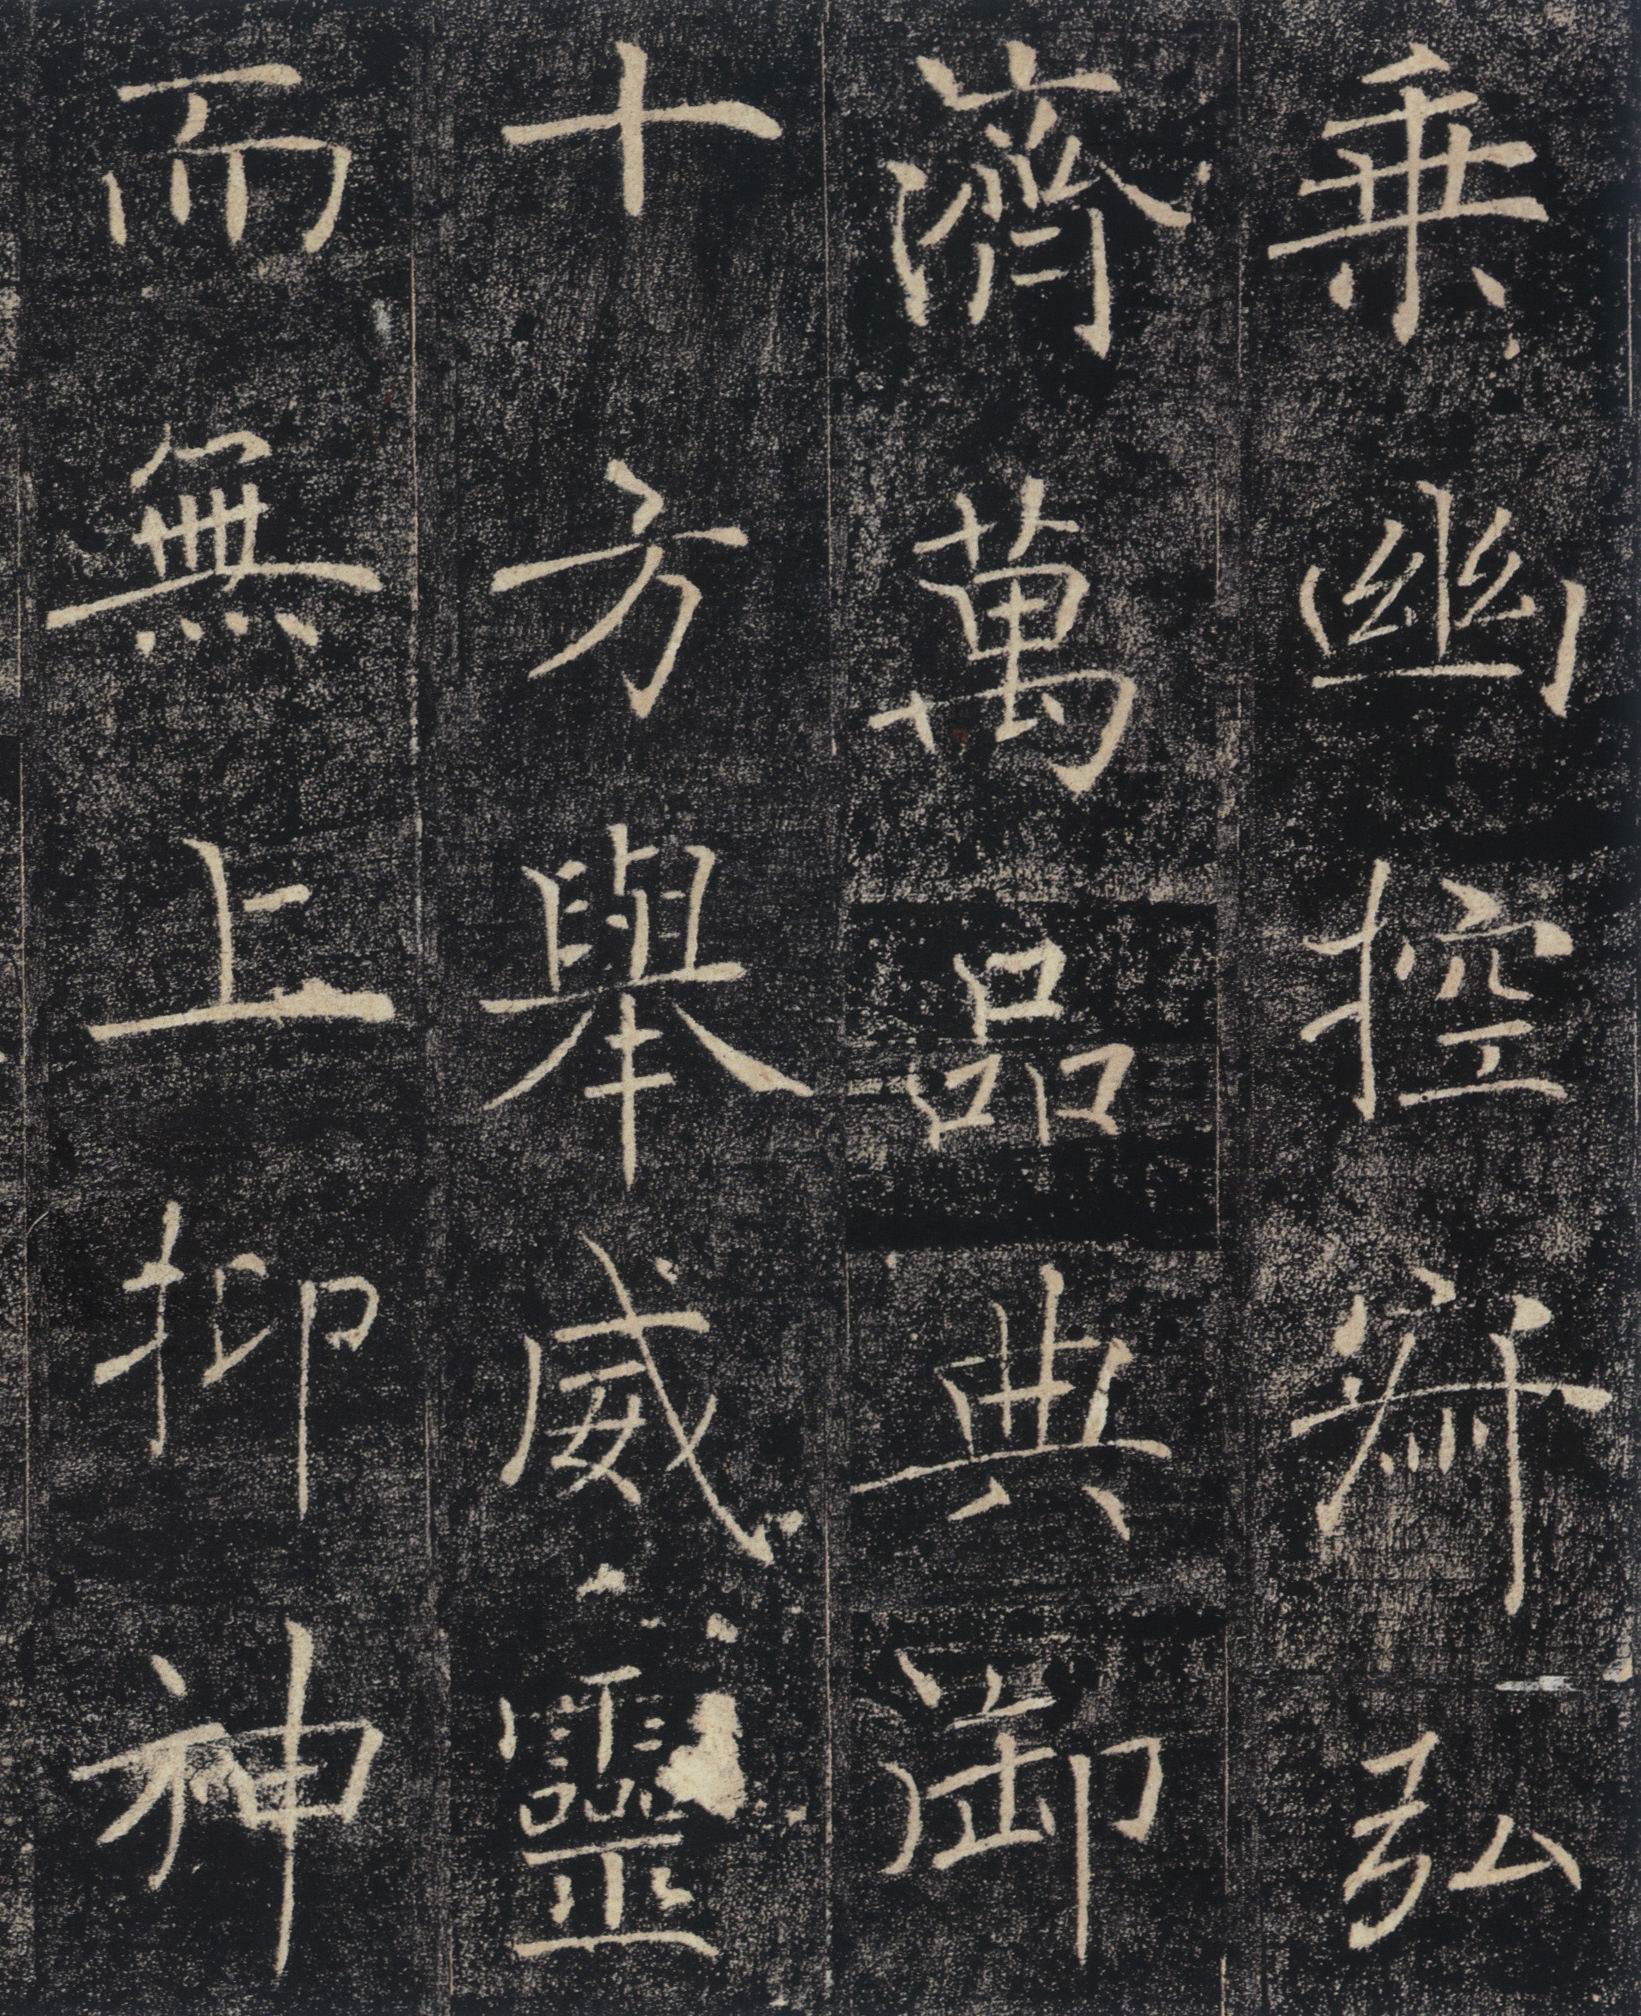 乗幽控寂弘
濟萬品典御
十方舉威靈
而無上抑神